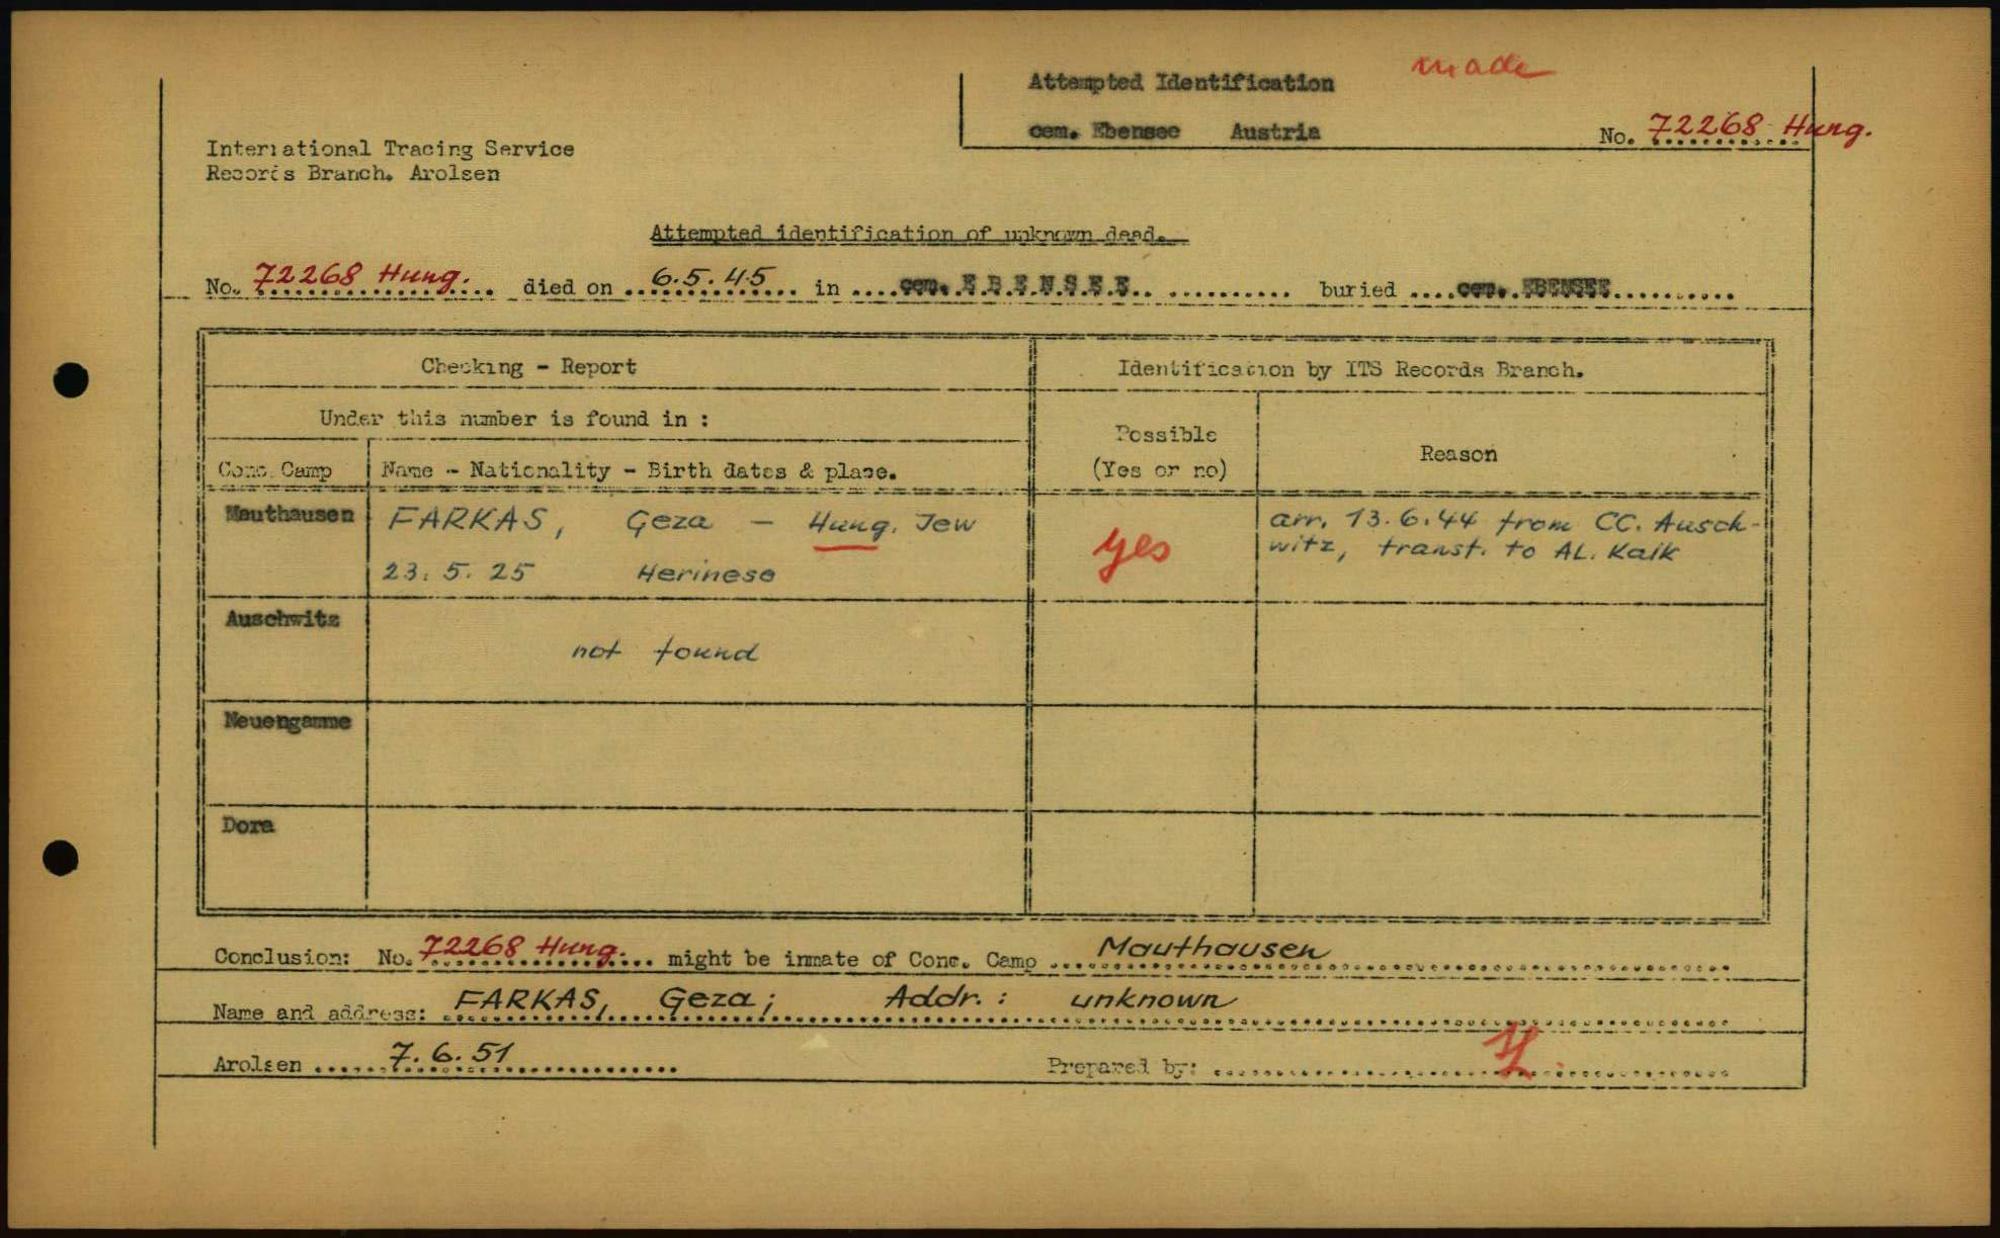 made
Attempted Identification
cem. Ebensee Austria No. 72268 Hung.
International Tracing Service
Records Branch. Arolsen
Attempted identification of unknown dead.
No. 72268 Hung. died on 6.5.45 in cem. E.B.E.N.S.E.E. buried cem. EBENSEE
Checking - Report
Identification by ITS Records Branch.
Under this number is found in :
Possible
(Yes or no)
Reason
Conc. Camp Name - Nationality - Birth dates & place.
Mauthausen FARKAS, Geza - Hung. Jew
23. 5. 25 Herinese
yes
arr. 13.6.44 from CC. Ausch-
witz, transf. to AL. Kaik
Auschwitz
not found
Neuengamme
Dora
Conclusion: No. 72268 Hung. might be inmate of Conc. Camp Mauthausen
Name and address: FARKAS, Geza; Addr.: unknown
Arolsen 7.6.51 Prepared by: